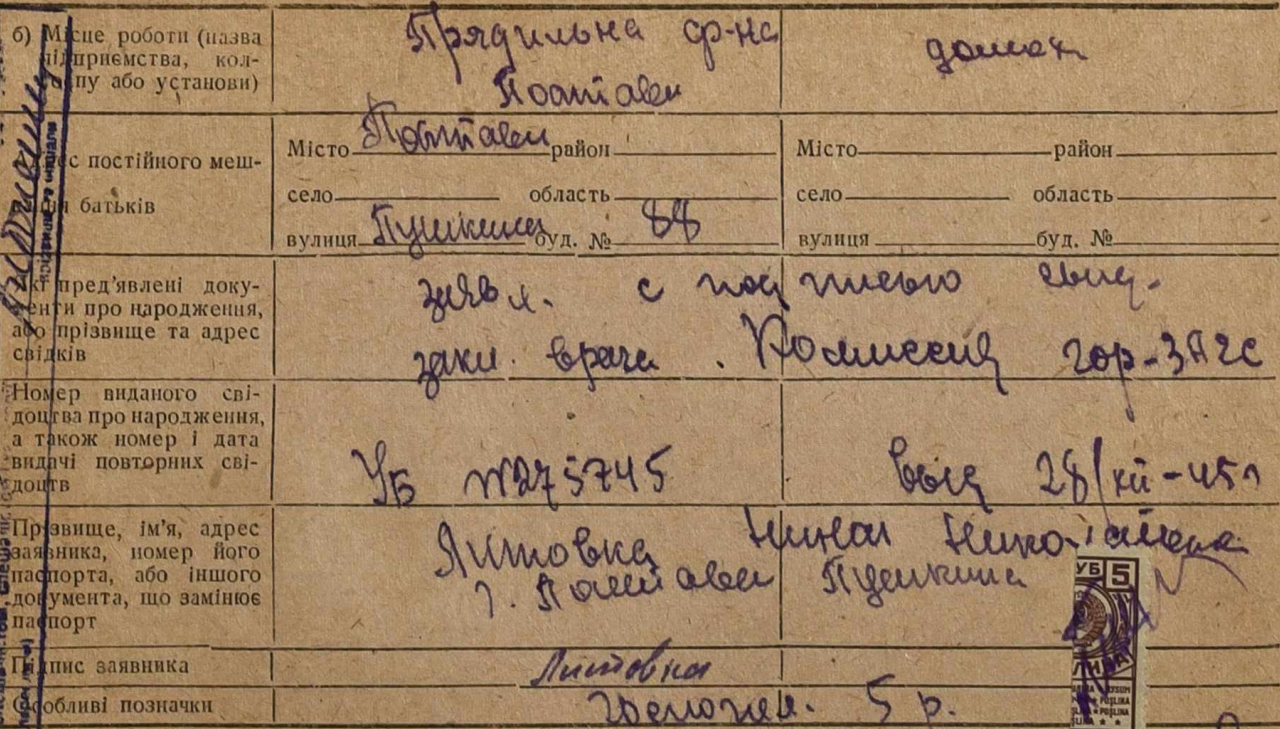 б) Місце роботи (назва
підприємства, кол-
госпу або установи)
Прядильна ф-на
Полтави
домох
адрес постійного меш-
кання батьків
Місто Полтави район
село область
вулиця Пушкина буд. № 88
Місто район
село область
вулиця буд. №
Які пред'явлені доку-
менти про народження,
або прізвище та адрес
свідків
заявл. с подписью свид.
закл. врача. Комиссия гор-ЗАГС
Номер виданого сві-
доцтва про народження,
а також номер і дата
видачі повторних сві-
доцтв
УБ №275745 выд 28/XII-45г
Прізвище, ім'я, адрес
заявника, номер його
паспорта, або іншого
документа, що замінює
паспорт
Литовка Нина Николаевна
г. Полтава Пушкина
УБ 5
Підпис заявника
Литовка
Особливі позначки
госпошл. 5 р.